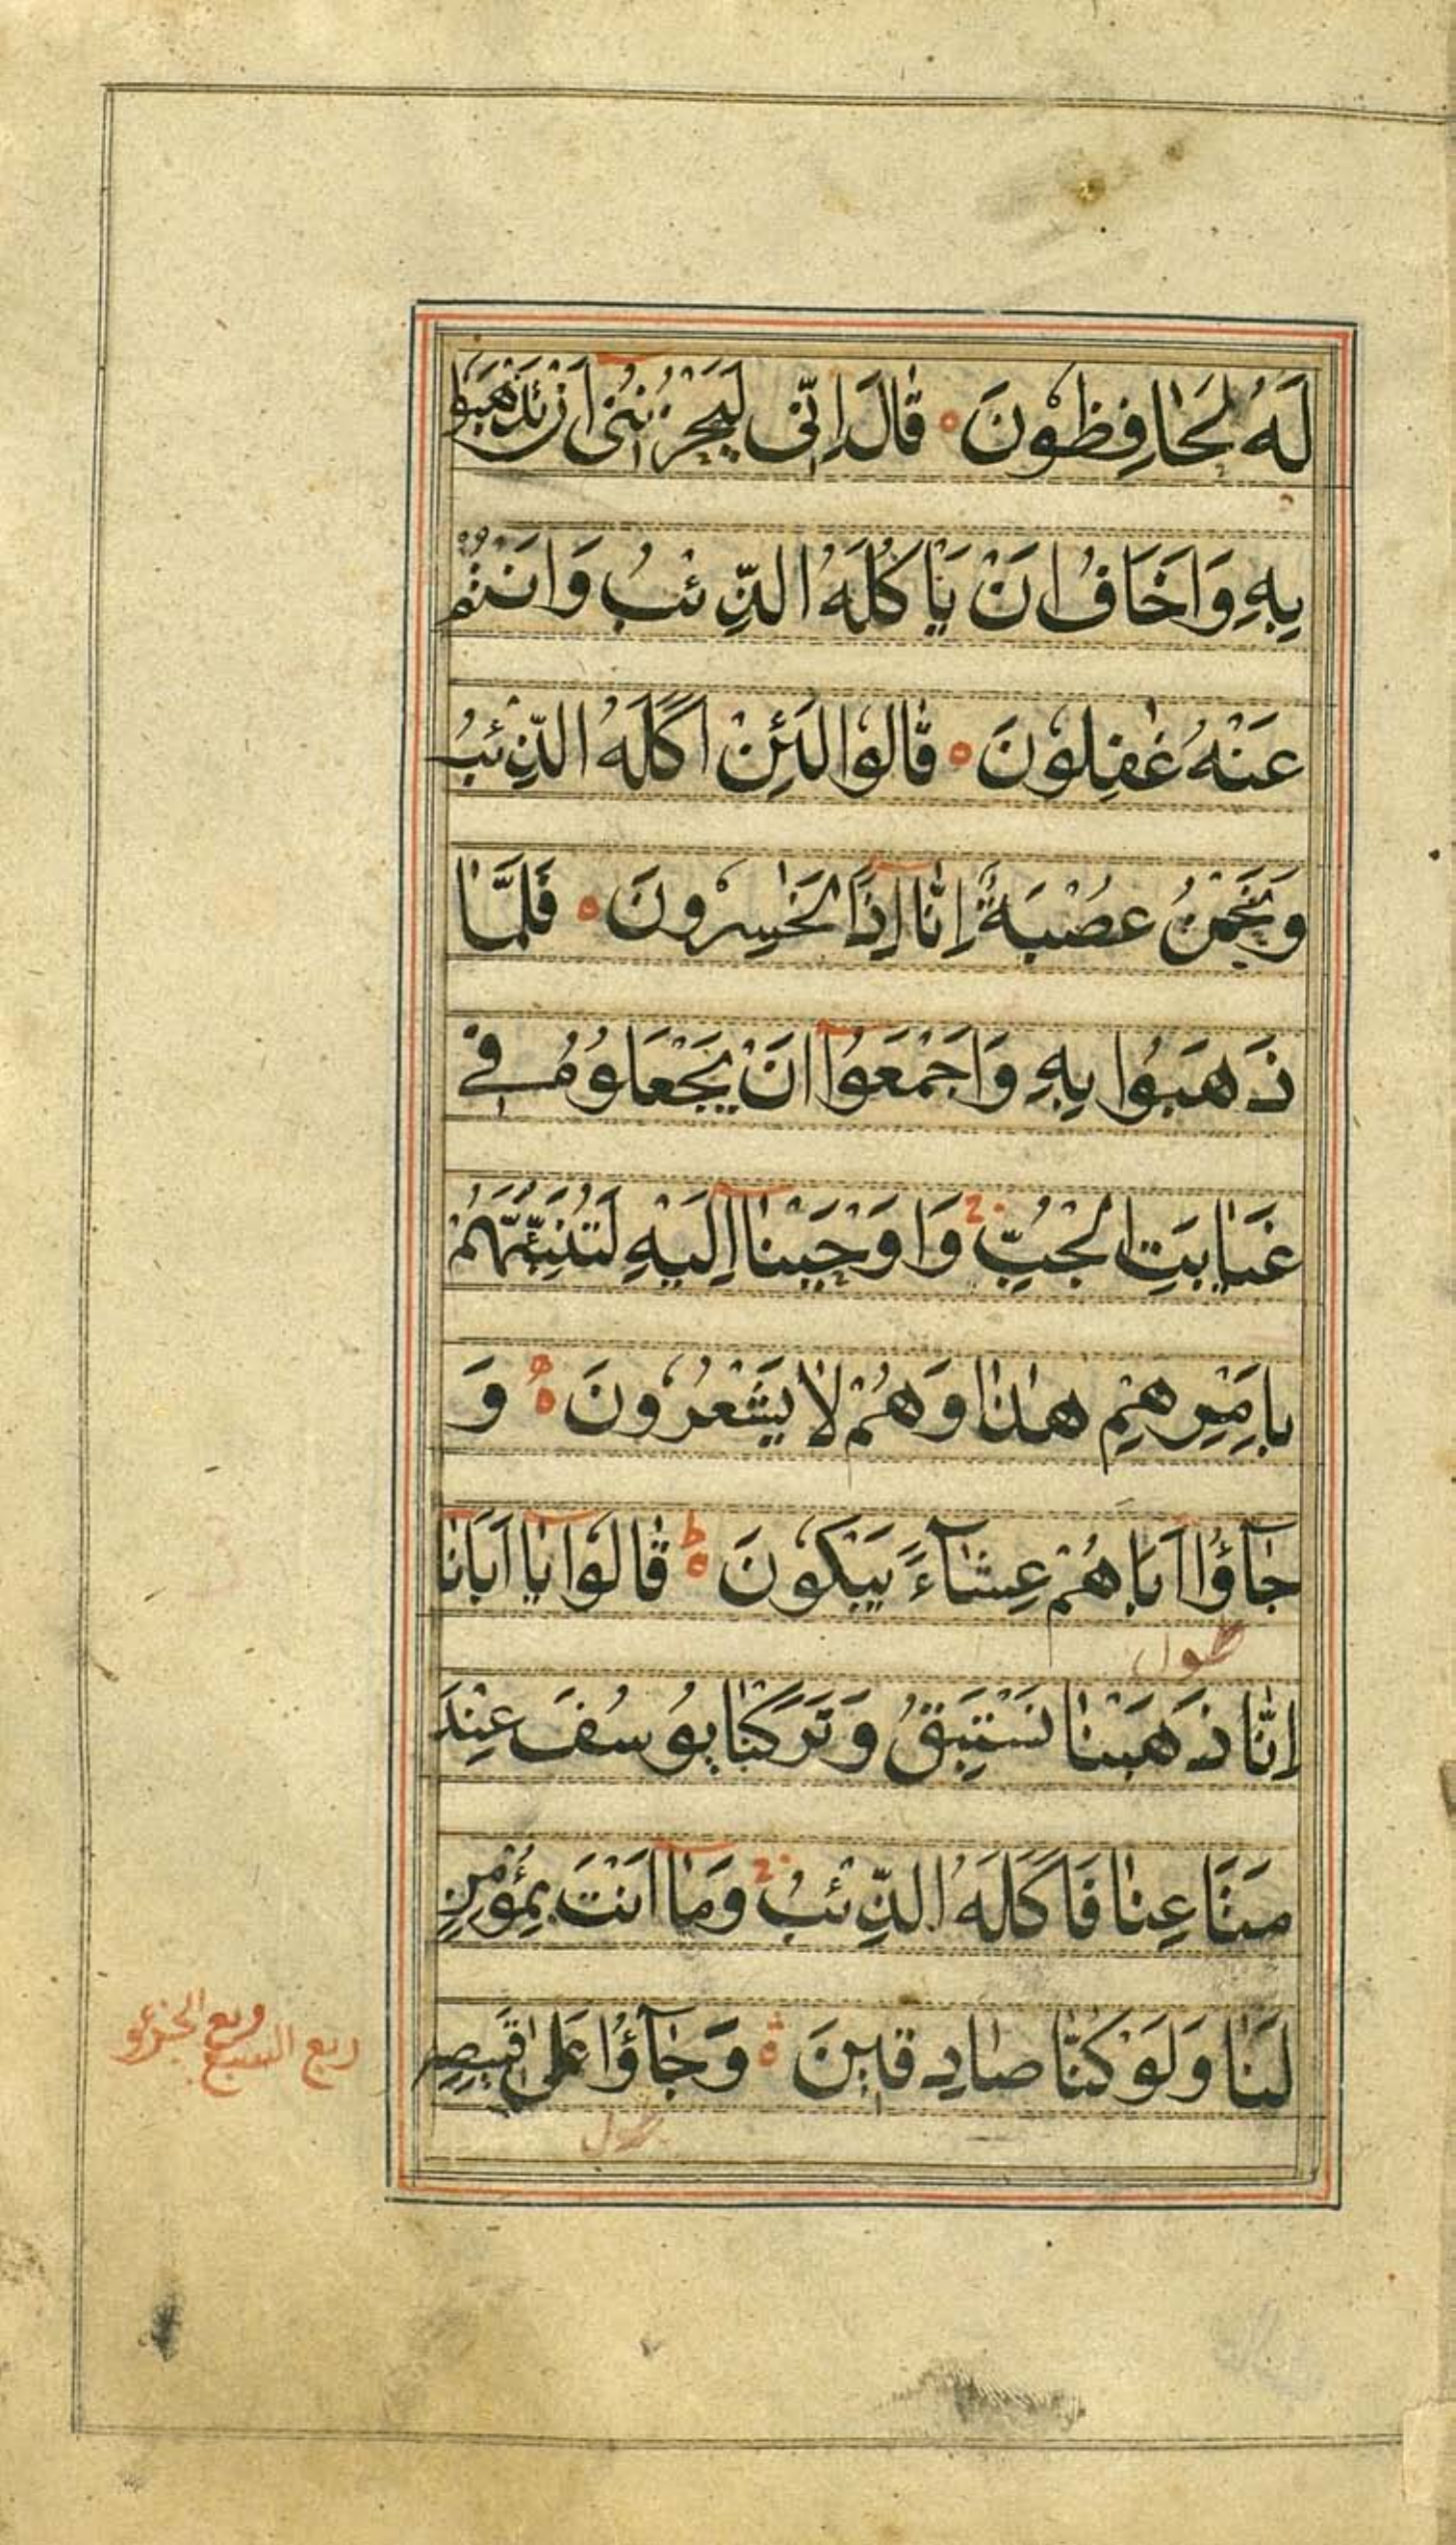 لَهُ لَحَافِظُوْنَ ه قَالَ اِنِّی لَیَحْزُنُنِیْ اَنْ تَذْهَبُوْا
بِهٖ وَاَخَافُ اَنْ یَّاْكُلَهُ الذِّئْبُ وَاَنْتُمْ
عَنْهُ غٰفِلُوْنَ ه قَالُوْا لَئِنْ اَكَلَهُ الذِّئْبُ
وَنَحْنُ عُصْبَةٌ اِنَّا اِذًا لَّخٰسِرُوْنَ ه فَلَمَّا
ذَهَبُوْا بِهٖ وَاَجْمَعُوْا اَنْ یَّجْعَلُوْهُ فِیْ
غَیَابَتِ الْجُبِّ وَاَوْحَیْنَا اِلَیْهِ لَتُنَبِّئَنَّهُمْ
بِاَمْرِهِمْ هٰذَا وَهُمْ لَا یَشْعُرُوْنَ ه وَ
جَآؤُا اَبَاهُمْ عِشَآءً یَّبْكُوْنَ ه قَالُوْا یَا اَبَانَا
اِنَّا ذَهَبْنَا نَسْتَبِقُ وَتَرَكْنَا یُوْسُفَ عِنْدَ
مَتَاعِنَا فَاَكَلَهُ الذِّئْبُ وَمَا اَنْتَ بِمُؤْمِنٍ
لَّنَا وَلَوْ كُنَّا صَادِقِیْنَ ه وَجَآؤُا عَلٰی قَمِیْصِهٖ
ربع السبع وربع الجزء